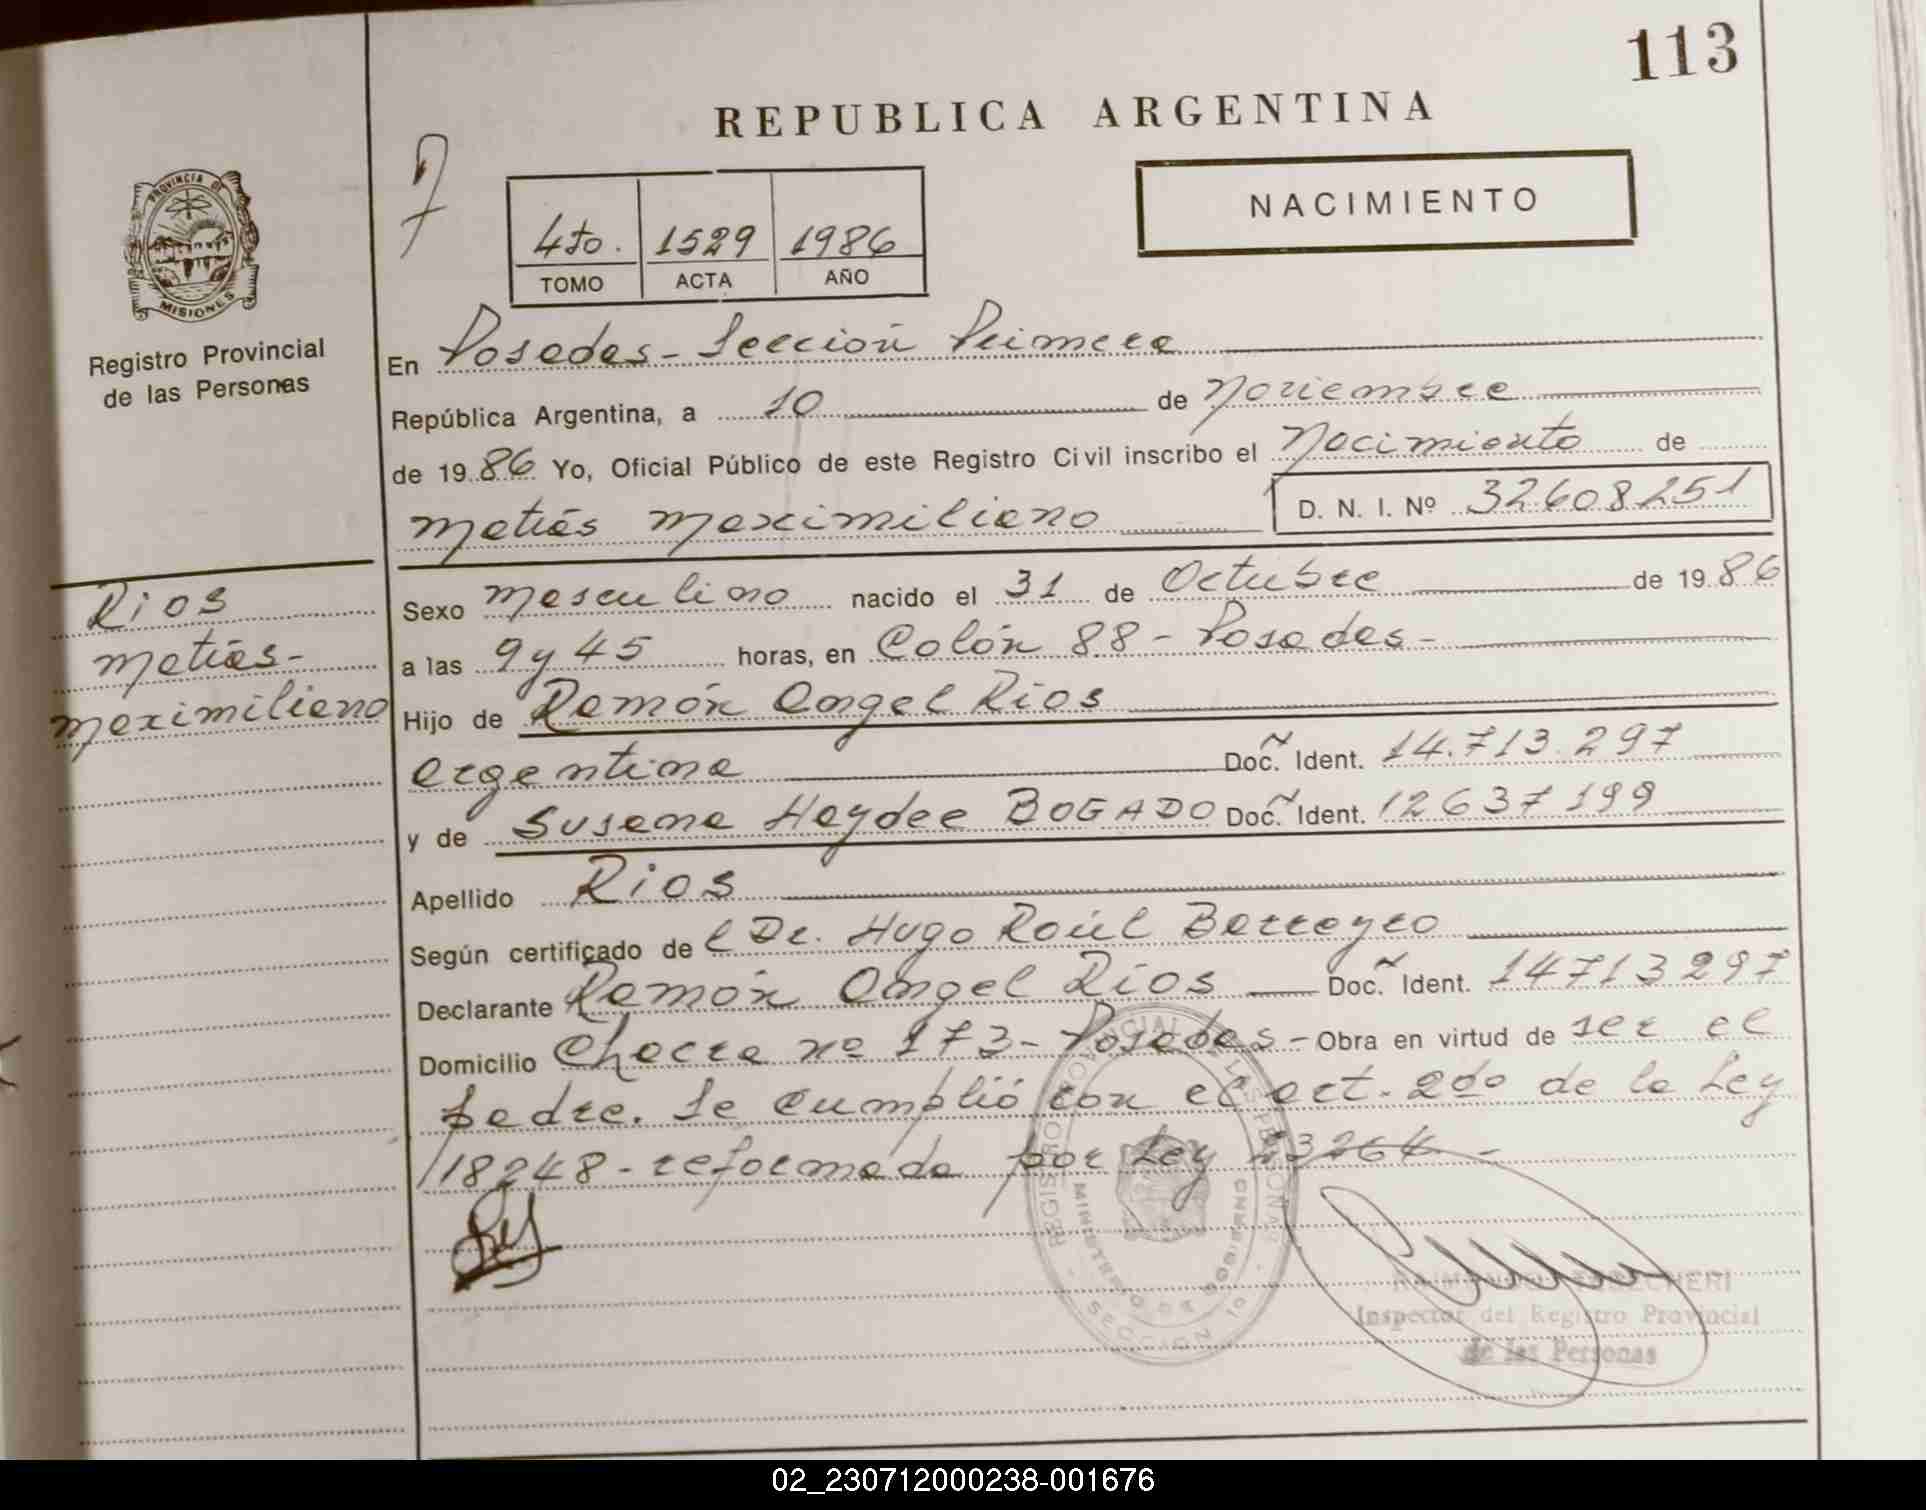 113
REPUBLICA ARGENTINA
NACIMIENTO
4to. 1529 1986
TOMO ACTA AÑO
PROVINCIA DE MISIONES
Registro Provincial
de las Personas
En Posadas - Sección Primera
República Argentina, a 10 de Noviembre
de 1986 Yo, Oficial Público de este Registro Civil inscribo el Nacimiento de
Matías Maximiliano D. N. I. Nº 32608251
Rios
Matías-
Maximiliano
Sexo Masculino nacido el 31 de Octubre de 1986
a las 9 y 45 horas, en Colón 88 - Posadas -
Hijo de Ramón Angel Rios
argentina Doc. Ident. 14.713.297
y de Susana Haydee BOGADO Doc. Ident. 12637199
Apellido Rios
Según certificado de l Dr. Hugo Raúl Barreyro
Declarante Ramón Angel Rios Doc. Ident. 14713297
Domicilio Chacra nº 173 - Posadas - Obra en virtud de ser el
padre. Se cumplió con el art. 2do de la Ley
18248 - reformada por Ley 23264 -
REGISTRO PROVINCIAL DE LAS PERSONAS
MINISTERIO DE GOBIERNO
SECCION 1º
Inspector del Registro Provincial
de las Personas
02_230712000238-001676